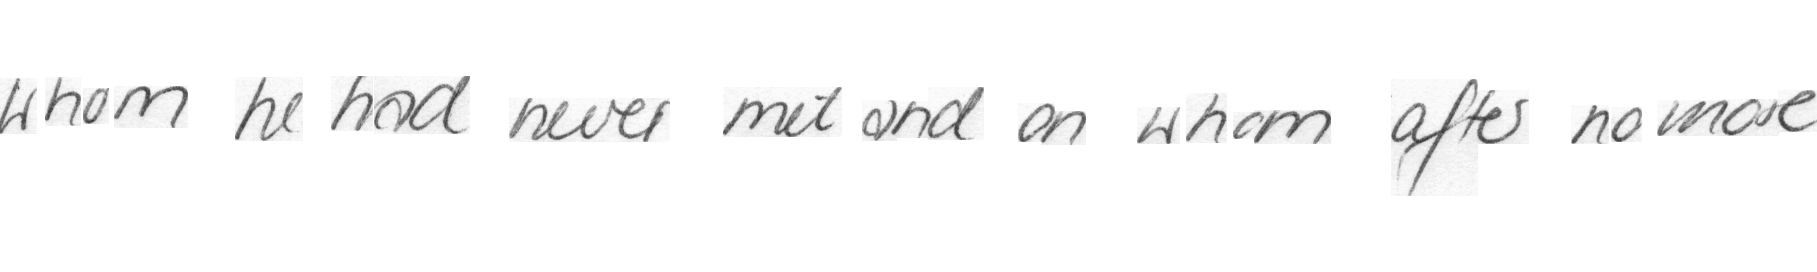 whom he had never met and on whom after no more